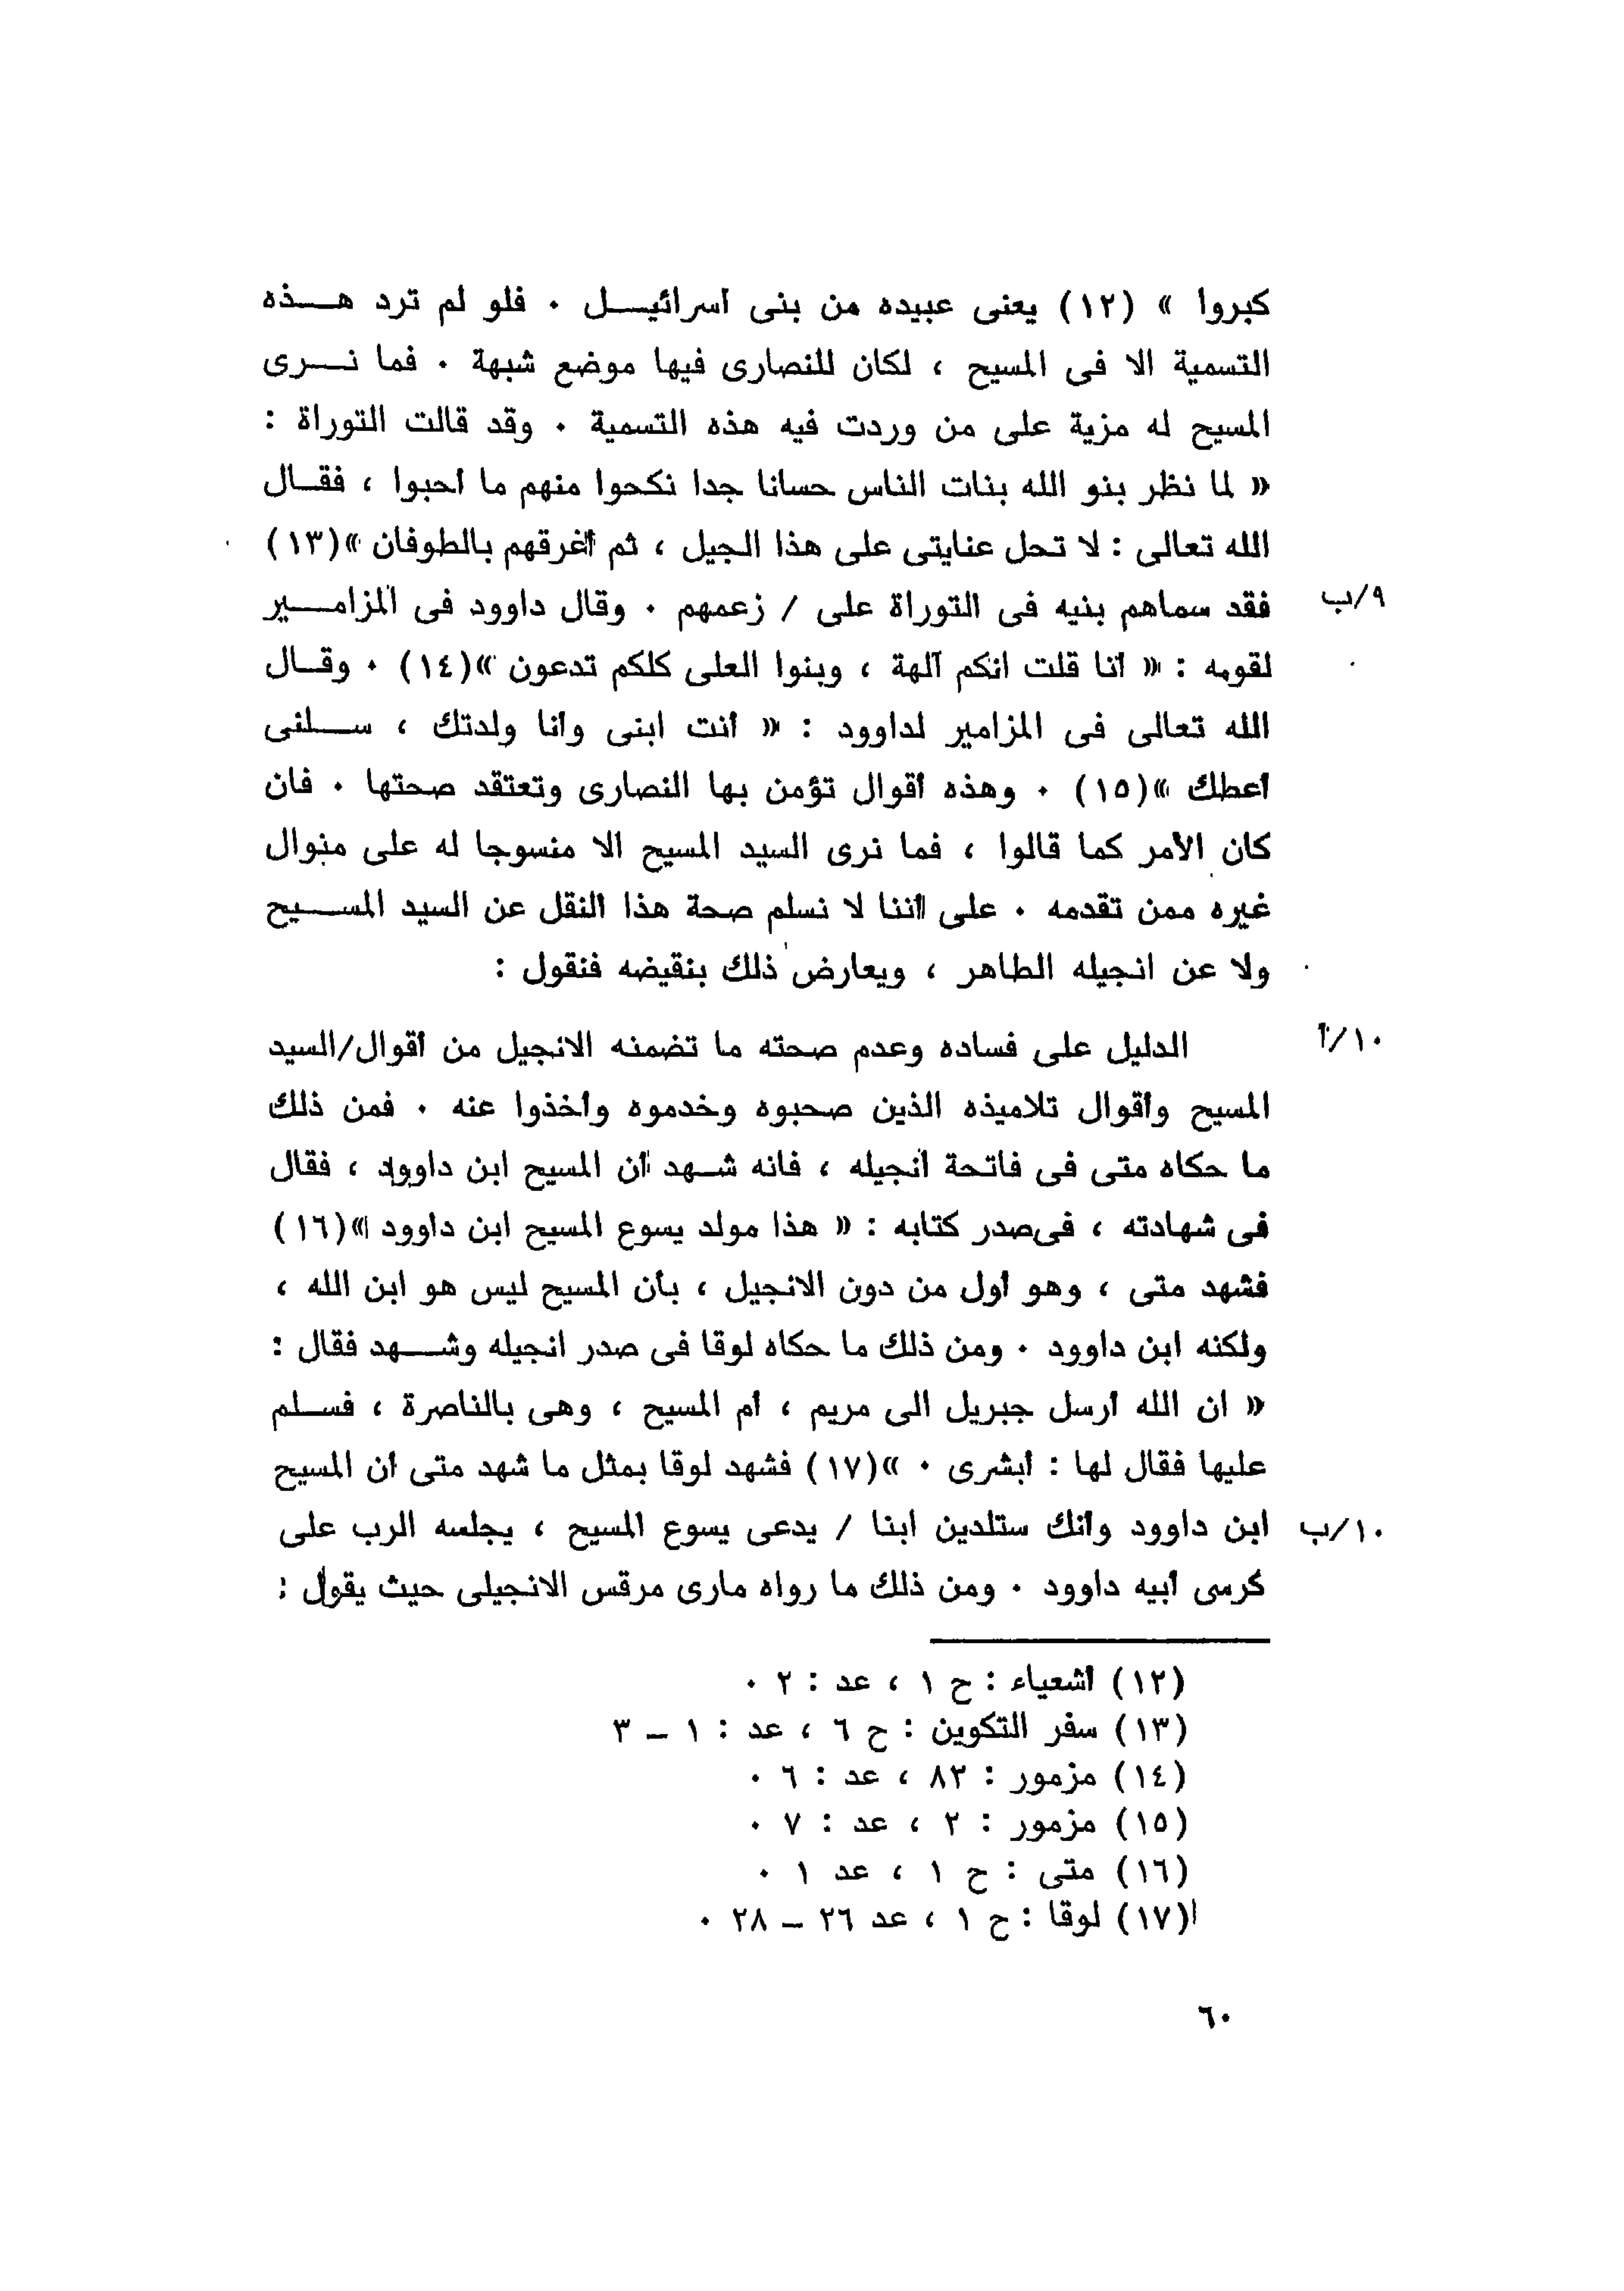 كبروا » (١٢) يعنى عبيده من بنى اسرائيــل ٠ فلو لم ترد هــذه
التسمية الا فى المسيح ، لكان للنصارى فيها موضع شبهة ٠ فما نــرى
المسيح له مزية على من وردت فيه هذه التسمية ٠ وقد قالت التوراة :
« لما نظر بنو الله بنات الناس حسانا جدا نكحوا منهم ما أحبوا ، فقــال
الله تعالى : لا تحل عنايتى على هذا الجيل ، ثم أغرقهم بالطوفان »(١٣)
٩/ب
فقد سماهم بنيه فى التوراة على / زعمهم ٠ وقال داوود فى المزامــير
لقومه : « أنا قلت انكم آلهة ، وبنوا العلى كلكم تدعون »(١٤) ٠ وقــال
الله تعالى فى المزامير لداوود : « أنت ابنى وأنا ولدتك ، ســلنى
أعطك »(١٥) ٠ وهذه أقوال تؤمن بها النصارى وتعتقد صحتها ٠ فان
كان الأمر كما قالوا ، فما نرى السيد المسيح الا منسوجا له على منوال
غيره ممن تقدمه ٠ على أننا لا نسلم صحة هذا النقل عن السيد المســيح
ولا عن انجيله الطاهر ، ويعارض ذلك بنقيضه فنقول :
١٠/أ
الدليل على فساده وعدم صحته ما تضمنه الانجيل من أقوال/السيد
المسيح وأقوال تلاميذه الذين صحبوه وخدموه وأخذوا عنه ٠ فمن ذلك
ما حكاه متى فى فاتحة انجيله ، فانه شــهد أن المسيح ابن داوود ، فقال
فى شهادته ، فى صدر كتابه : « هذا مولد يسوع المسيح ابن داوود »(١٦)
فشهد متى ، وهو أول من دون الانجيل ، بأن المسيح ليس هو ابن الله ،
ولكنه ابن داوود ٠ ومن ذلك ما حكاه لوقا فى صدر انجيله وشــهد فقال :
« ان الله أرسل جبريل الى مريم ، أم المسيح ، وهى بالناصرة ، فســلم
عليها فقال لها : أبشرى ٠ »(١٧) فشهد لوقا بمثل ما شهد متى أن المسيح
١٠/ب
ابن داوود وأنك ستلدين ابنا / يدعى يسوع المسيح ، يجلسه الرب على
كرسى أبيه داوود ٠ ومن ذلك ما رواه مارى مرقس الانجيلى حيث يقول :
(١٢) أشعياء : ح ١ ، عد : ٢ ٠
(١٣) سفر التكوين : ح ٦ ، عد : ١ – ٣
(١٤) مزمور : ٨٢ ، عد : ٦ ٠
(١٥) مزمور : ٢ ، عد : ٧ ٠
(١٦) متى : ح ١ ، عد ١ ٠
(١٧) لوقا : ح ١ ، عد ٢٦ – ٢٨ ٠
٦٠